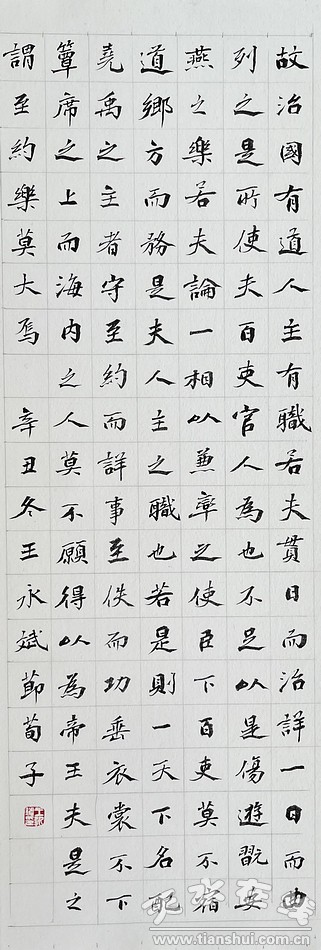 故治國有道人主有職若夫貫日而治詳一日而曲
列之是所使夫百吏官人為也不足以是傷遊翫安
燕之樂若夫論一相以兼率之使臣下百吏莫不宿
道鄉方而務是夫人主之職也若是則一天下名配
堯禹之主者守至約而詳事至佚而功垂衣裳不下
簟席之上而海内之人莫不願得以為帝王夫是之
謂至約樂莫大焉 辛丑冬王永斌節荀子
天水在线
www.tianshui.com.cn